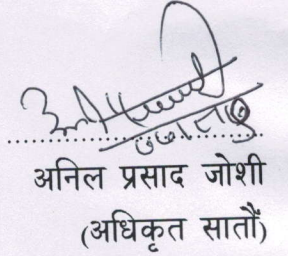 अनिल प्रसाद जोशी
(अधिकृत सातौं)